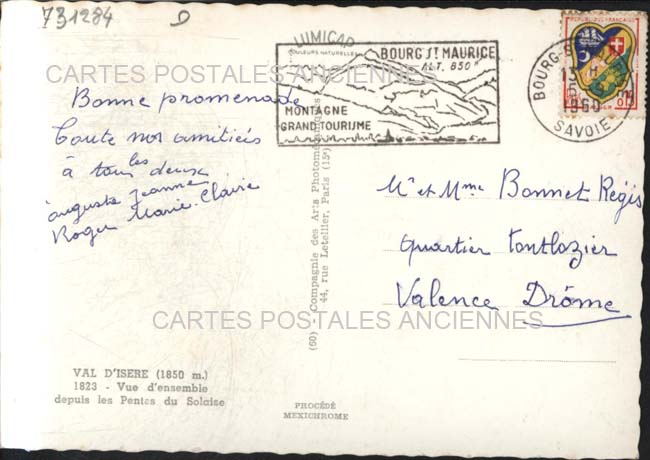 731284
LUMICAP
COULEURS NATURELLES
BOURG ST MAURICE
ALT. 850m
MONTAGNE
GRAND TOURISME
REPUBLIQUE FRANÇAISE
13 H
1960
SAVOIE
CARTES POSTALES ANCIENNES
Bonne promenade
Toute nos amitiés
à tous les deux
auguste Jeanne
Roger Marie-Claire
(60) - Compagnie des Arts Photomécaniques
44, rue Letellier, Paris (15e)
Mr et Mme Bonnet Régis
quartier Fontlozier
Valence Drôme
CARTES POSTALES ANCIENNES
VAL D'ISERE (1850 m.)
1823 - Vue d'ensemble
depuis les Pentes du Solaise
PROCÉDÉ
MEXICHROME